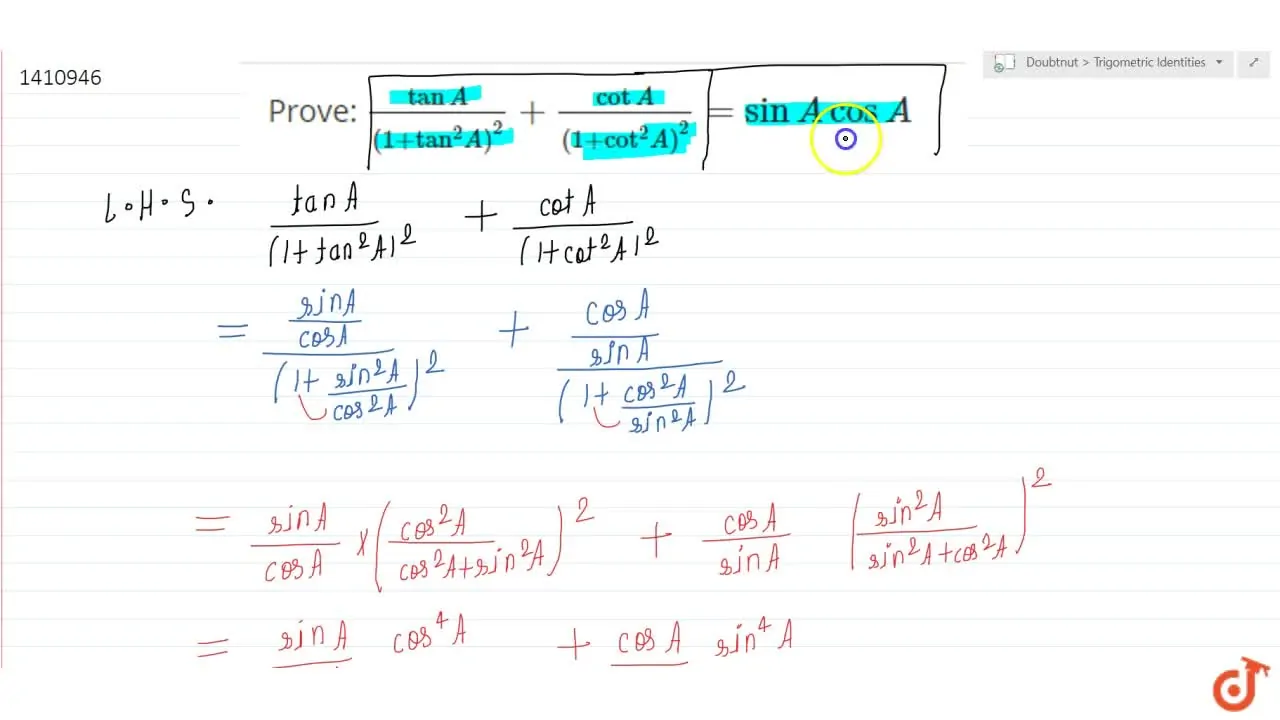 1410946
Doubtnut > Trigometric Identities
Prove: tan A/(1+tan²A)² + cot A/(1+cot²A)² = sin A cos A
L.H.S. tan A/(1+tan²A)² + cot A/(1+cot²A)²
= (sinA/cosA)/(1+ sin²A/cos²A)² + (cosA/sinA)/(1+ cos²A/sin²A)²
= sinA/cosA × (cos²A/(cos²A+sin²A))² + cosA/sinA (sin²A/(sin²A+cos²A))²
= sinA cos⁴A + cosA sin⁴A